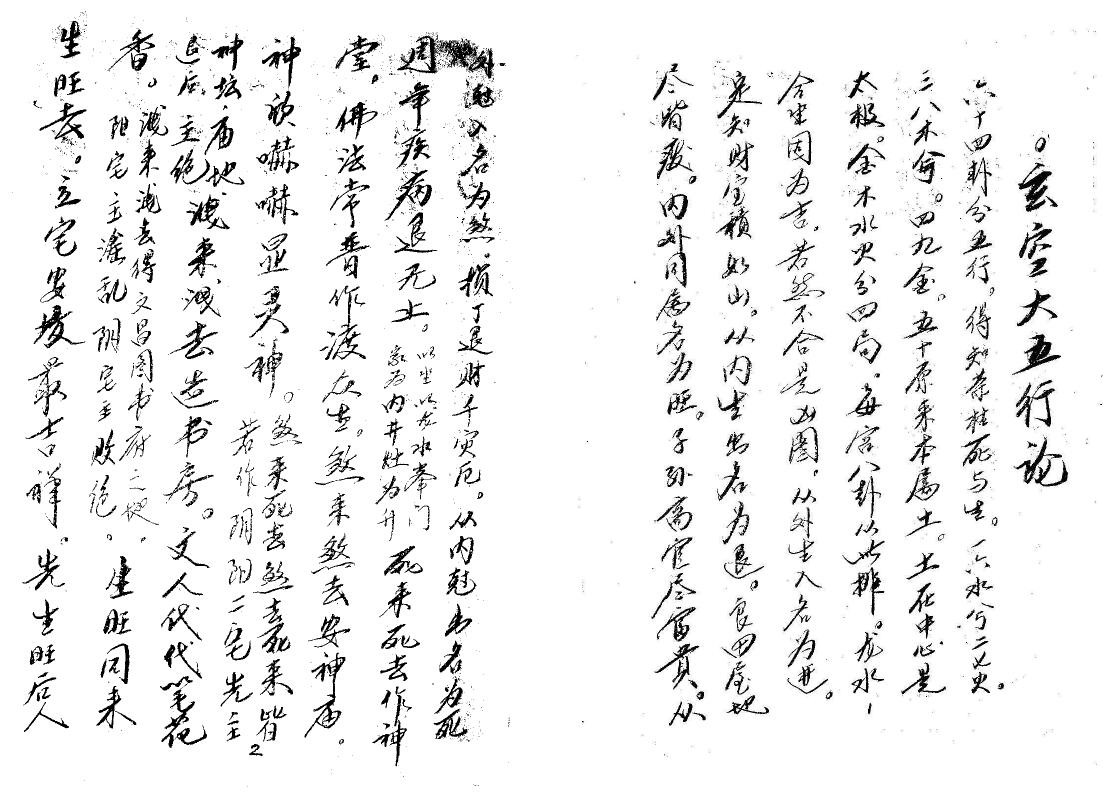 玄空大五行论
六十四卦分五行。得知荣枯死与生。一六水兮二七火。
三八木兮。四九金。五十原来本属土。土在中心是
太极。金木水火分四局。每宫八卦从此排。龙水
合坐因为吉。若然不合是凶图。从外生入名为进。
定知财宝积如山。从内生出名为退。良田屋地
尽皆废。内外同属名为旺。子孙高官尽富贵。从
1
外克入名为煞。损丁退财千灾厄。从内克出名为死
周年疾病退无止。以坐以龙水奉门
家为内井灶为升
死来死去作神
堂。佛法常普作渡众生。煞来煞去安神庙。
神欣嚇嚇显灵神。煞来死去煞去死来皆
若作阴阳二宅先主
神坛庙地
退后主绝
洩来洩去造书房。文人代代笔花
香。洩来洩去得文昌图书府之地。
阳宅主淫乱阴宅主败绝。
生旺同来
生旺去。立宅安坟最吉祥。先生旺后人
2